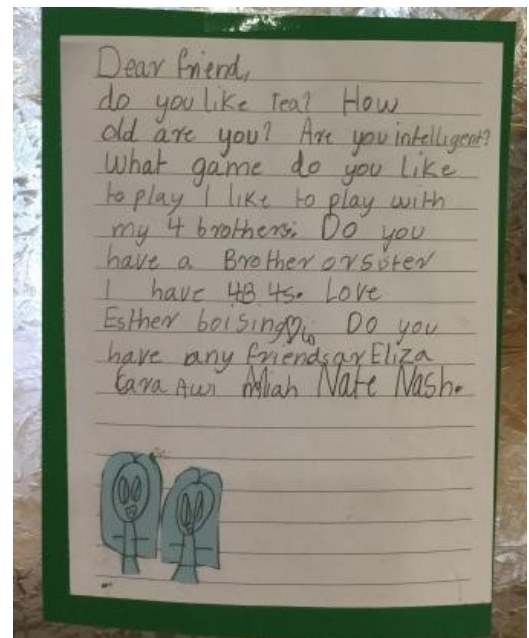 Dear friend,
do you like tea? How
old are you? Are you intelligent?
What game do you like
to play I like to play with
my 4 brothers. Do you
have a Brother or Sister
I have Love
Esther Do you
have any friends ar Eliza
Cara Miah Nate Nash.